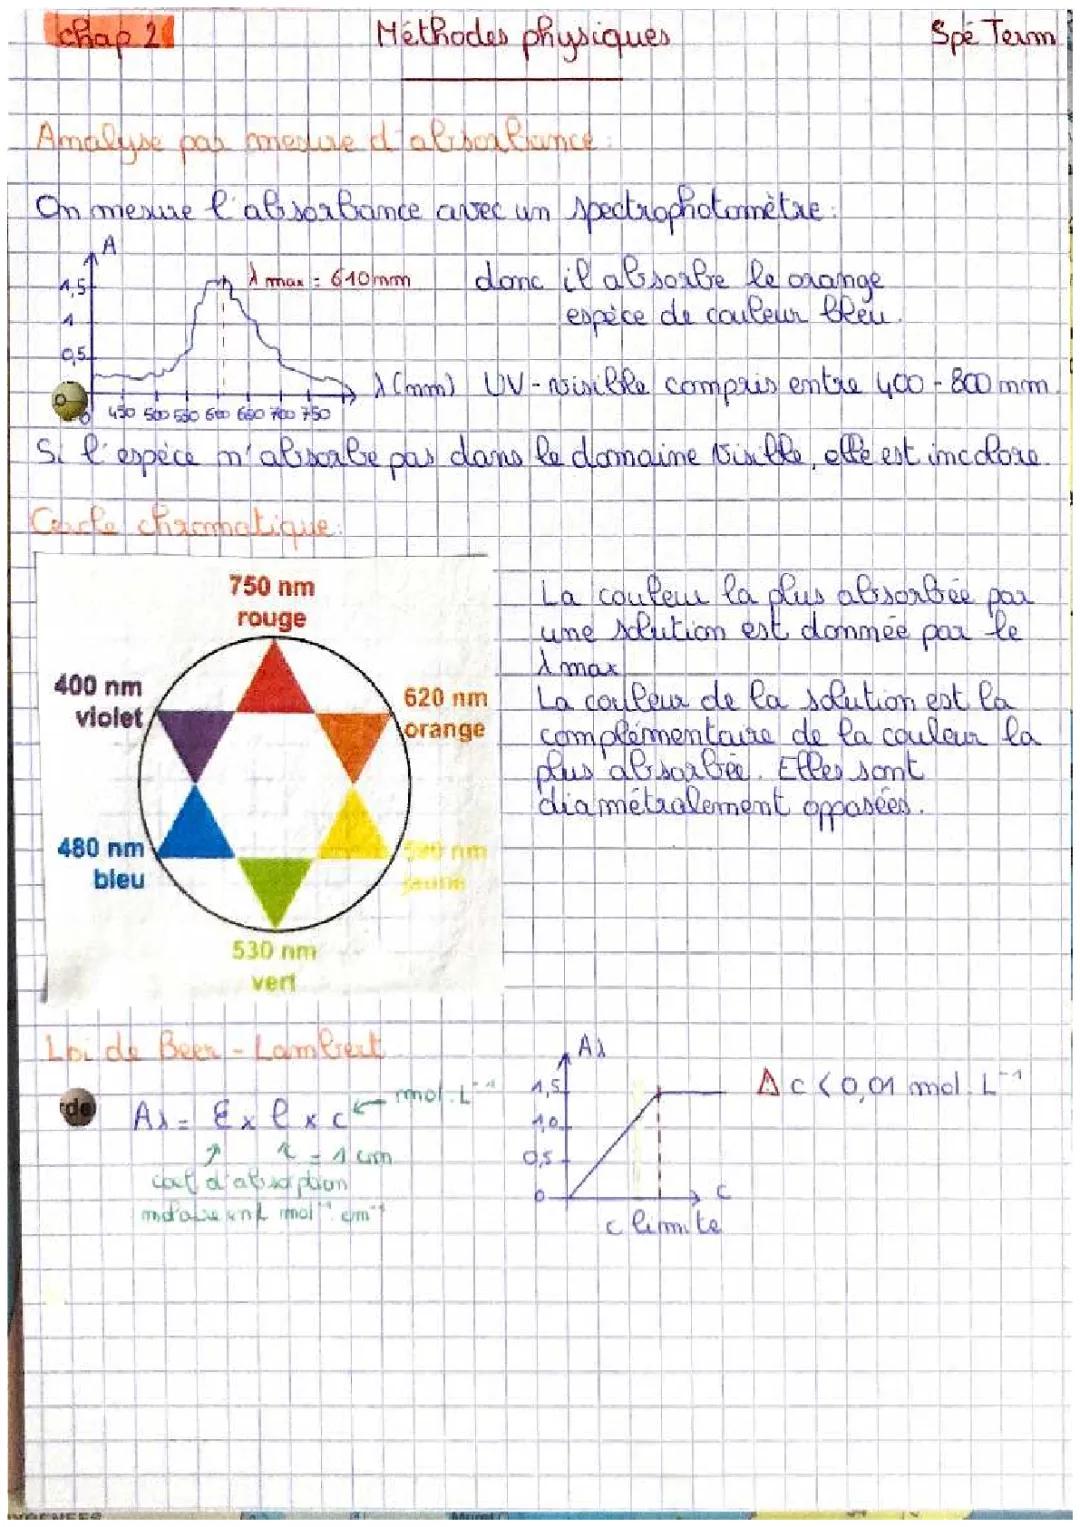 chap 2
Méthodes physiques
Spé Term
Analyse par mesure d'absorbance :
On mesure l'absorbance avec un spectrophotomètre :
A
1,5
1
0,5
0
λ max = 610 nm
donc il absorbe le orange
espèce de couleur bleu.
450 500 550 600 650 700 750
λ (nm)
UV-visible compris entre 400 - 800 nm.
Si l'espèce n'absorbe pas dans le domaine visible, elle est incolore.
Cercle chromatique :
750 nm
rouge
400 nm
violet
620 nm
orange
480 nm
bleu
nm
jaune
530 nm
vert
La couleur la plus absorbée par
une solution est donnée par le
λ max
La couleur de la solution est la
complémentaire de la couleur la
plus absorbée. Elles sont
diamétralement opposées.
Loi de Beer - Lambert
de
Aλ = ε x l x c ← mol.L⁻¹
= 1 cm
coef d'absorption
molaire en L mol⁻¹ cm⁻¹
Aλ
1,5
1,0
0,5
0
c
c limite
⚠ c < 0,01 mol.L⁻¹